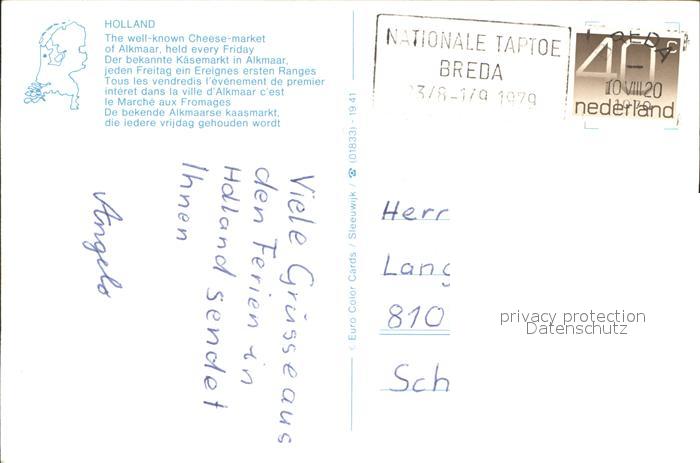 HOLLAND
The well-known Cheese-market
of Alkmaar, held every Friday
Der bekannte Käsemarkt in Alkmaar,
jeden Freitag ein Ereignes ersten Ranges
Tous les vendredis l'événement de premier
intéret dans la ville d'Alkmaar c'est
le Marché aux Fromages
De bekende Alkmaarse kaasmarkt,
die iedere vrijdag gehouden wordt
Viele Grüsse aus
den Ferien in
Holland sendet
Ihnen
Angelo
© Euro Color Cards / Sleeuwijk / ☎ (01833) - 19 41
NATIONALE TAPTOE
BREDA
23/8-1/9 1979
BREDA
10 VIII 20
1979
40c
nederland
Herr
Lang
810
Sch
privacy protection
Datenschutz